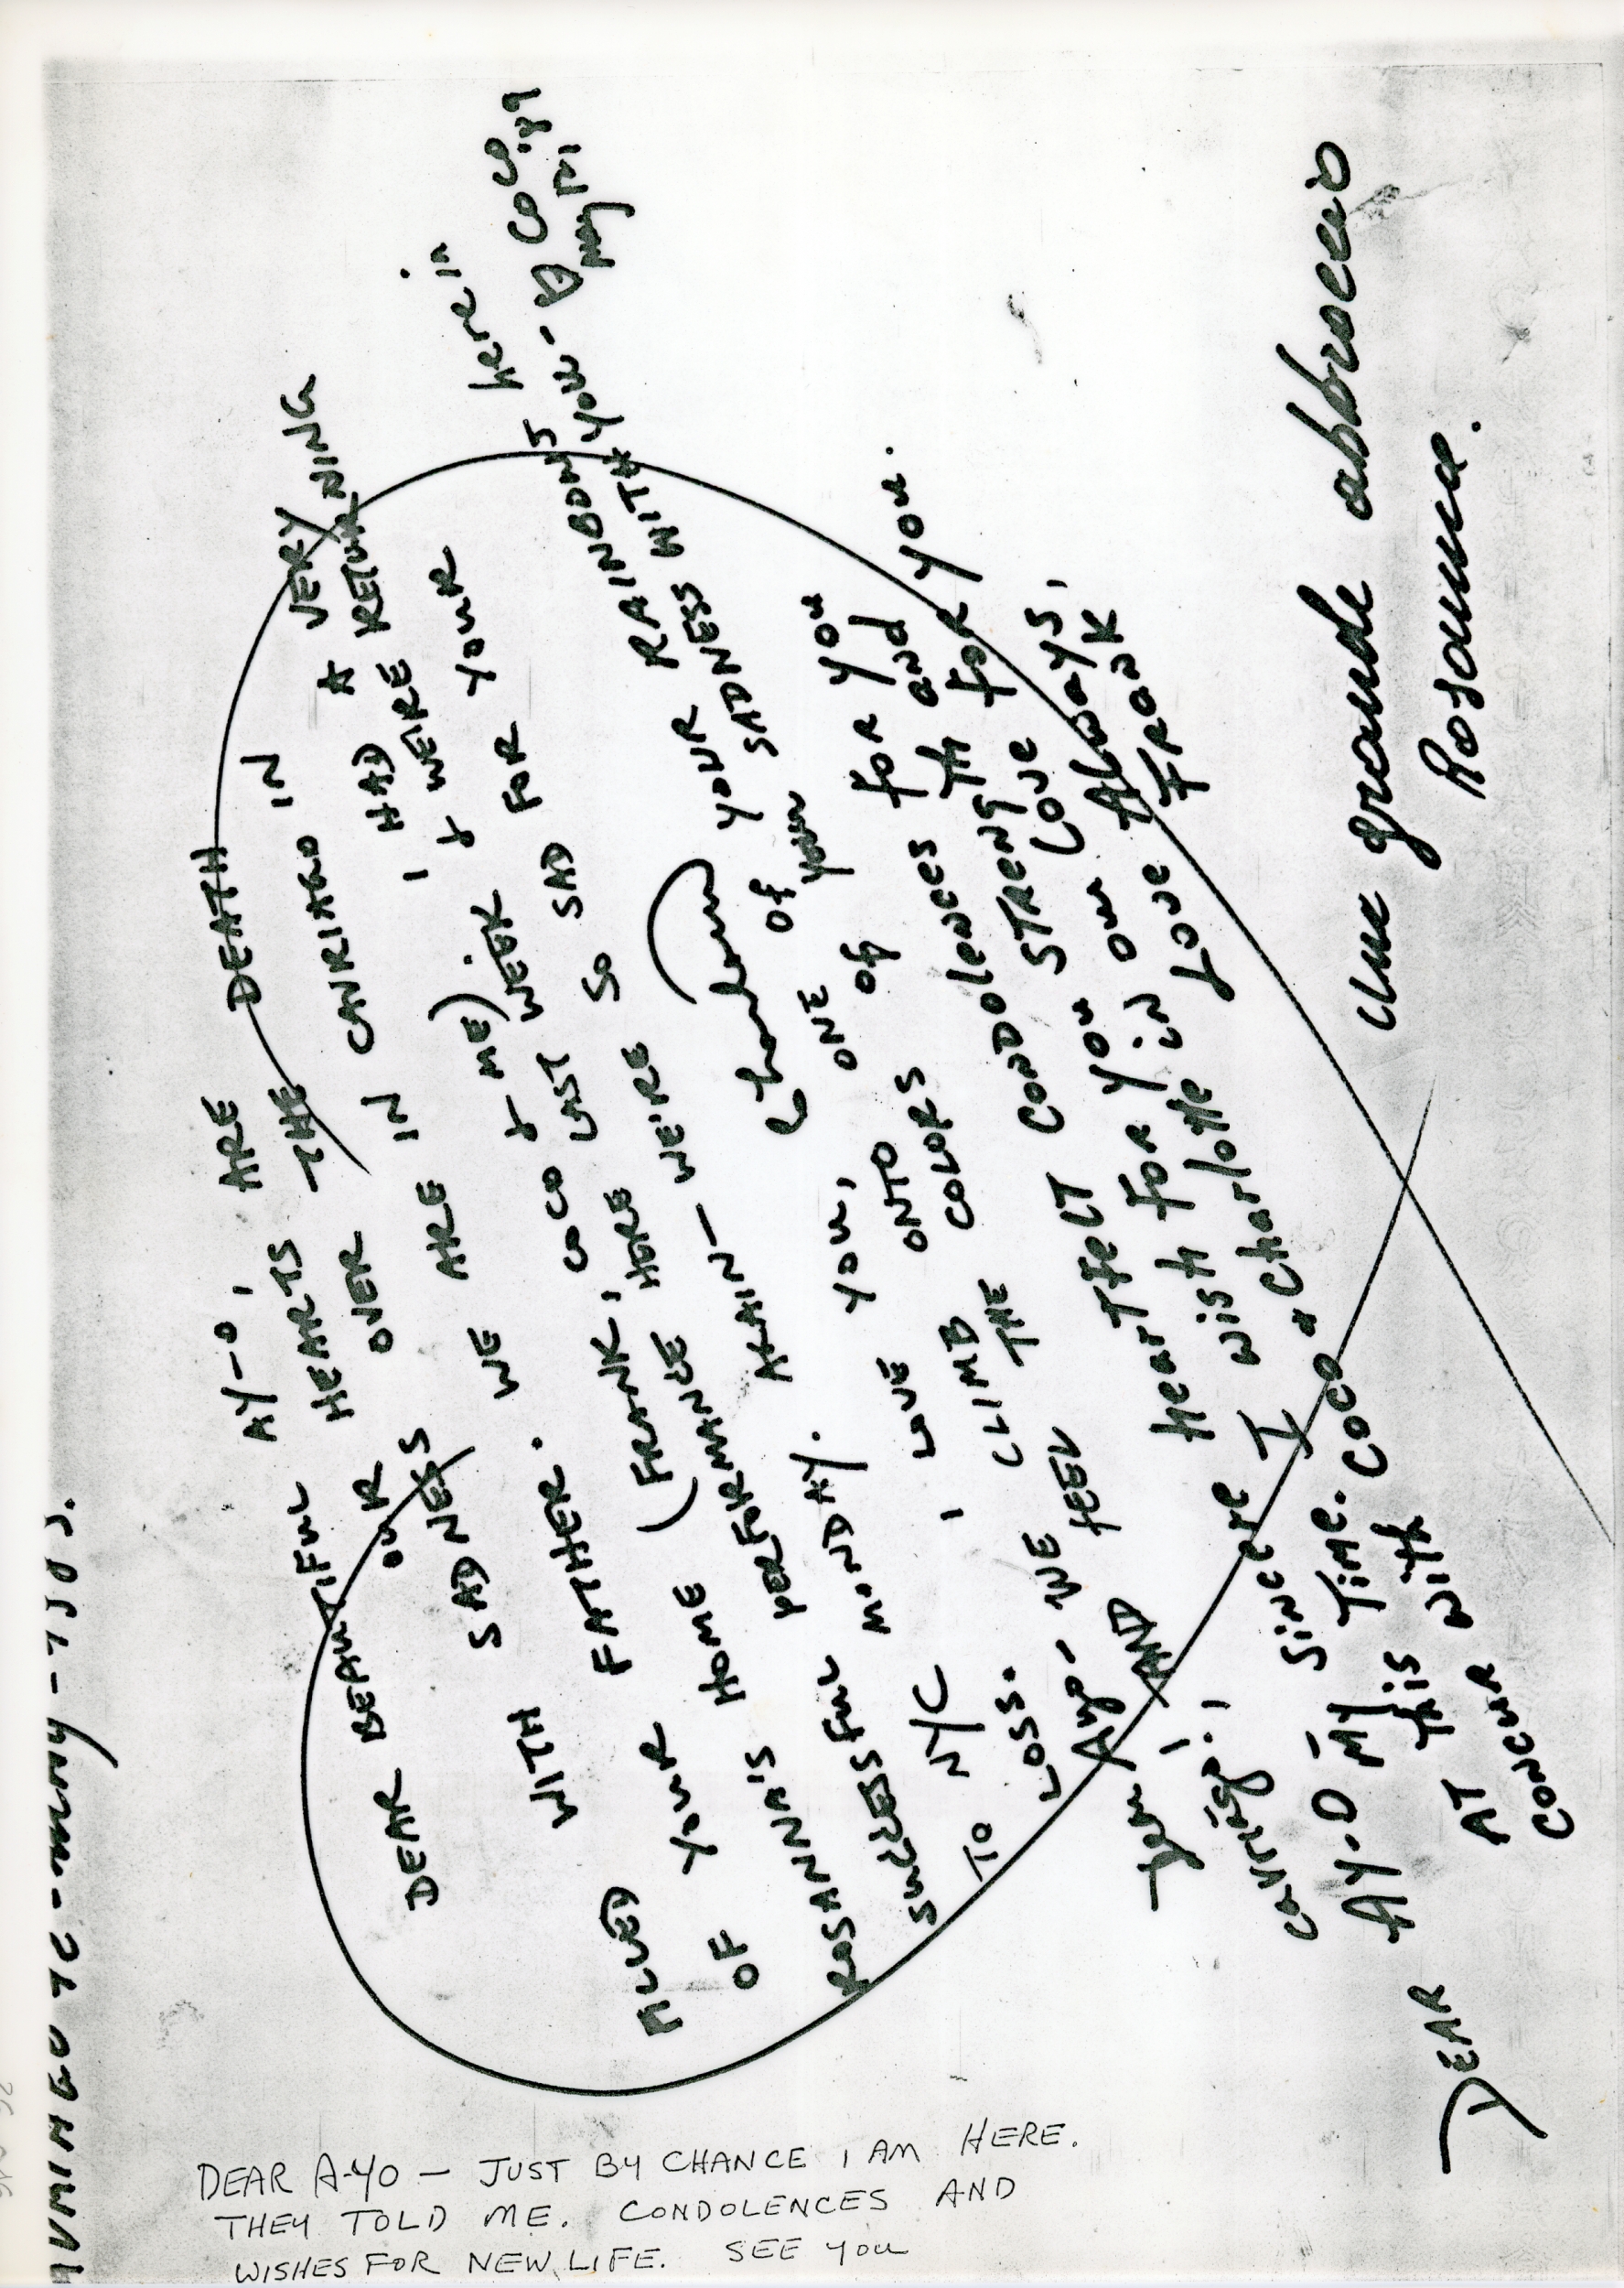 DEAR BEAUTIFUL AY-O,
OUR HEARTS ARE
FILLED WITH SADNESS OVER THE DEATH
OF YOUR FATHER. WE ARE IN CAVRIAGO IN
ROSANNA'S HOME (FRANK, COCO & ME) & I HAD A VERY
SUCCESSFUL PERFORMANCE HERE LAST WEEK & WE'RE RETURNING
TO NYC MONDAY. AGAIN— WE'RE SO SAD FOR YOUR
LOSS. I LOVE YOU,
AYO- WE CLIMB ONTO ONE OF YOUR RAINBOWS here in
AND FEEL THE COLORS OF your SADNESS WITH you-
Cavriago!
DEAR AY-O MY SINCERE HEARTFELT CONDOLENCES for you
AT THIS TIME. I wish for you STRENGTH and
CONCUR WITH COCO & Charlotte in our Love for you.
Love Always,
FRANK
Rosanna.
DEAR A-YO — JUST BY CHANCE I AM HERE.
THEY TOLD ME. CONDOLENCES AND
WISHES FOR NEW LIFE. SEE YOU